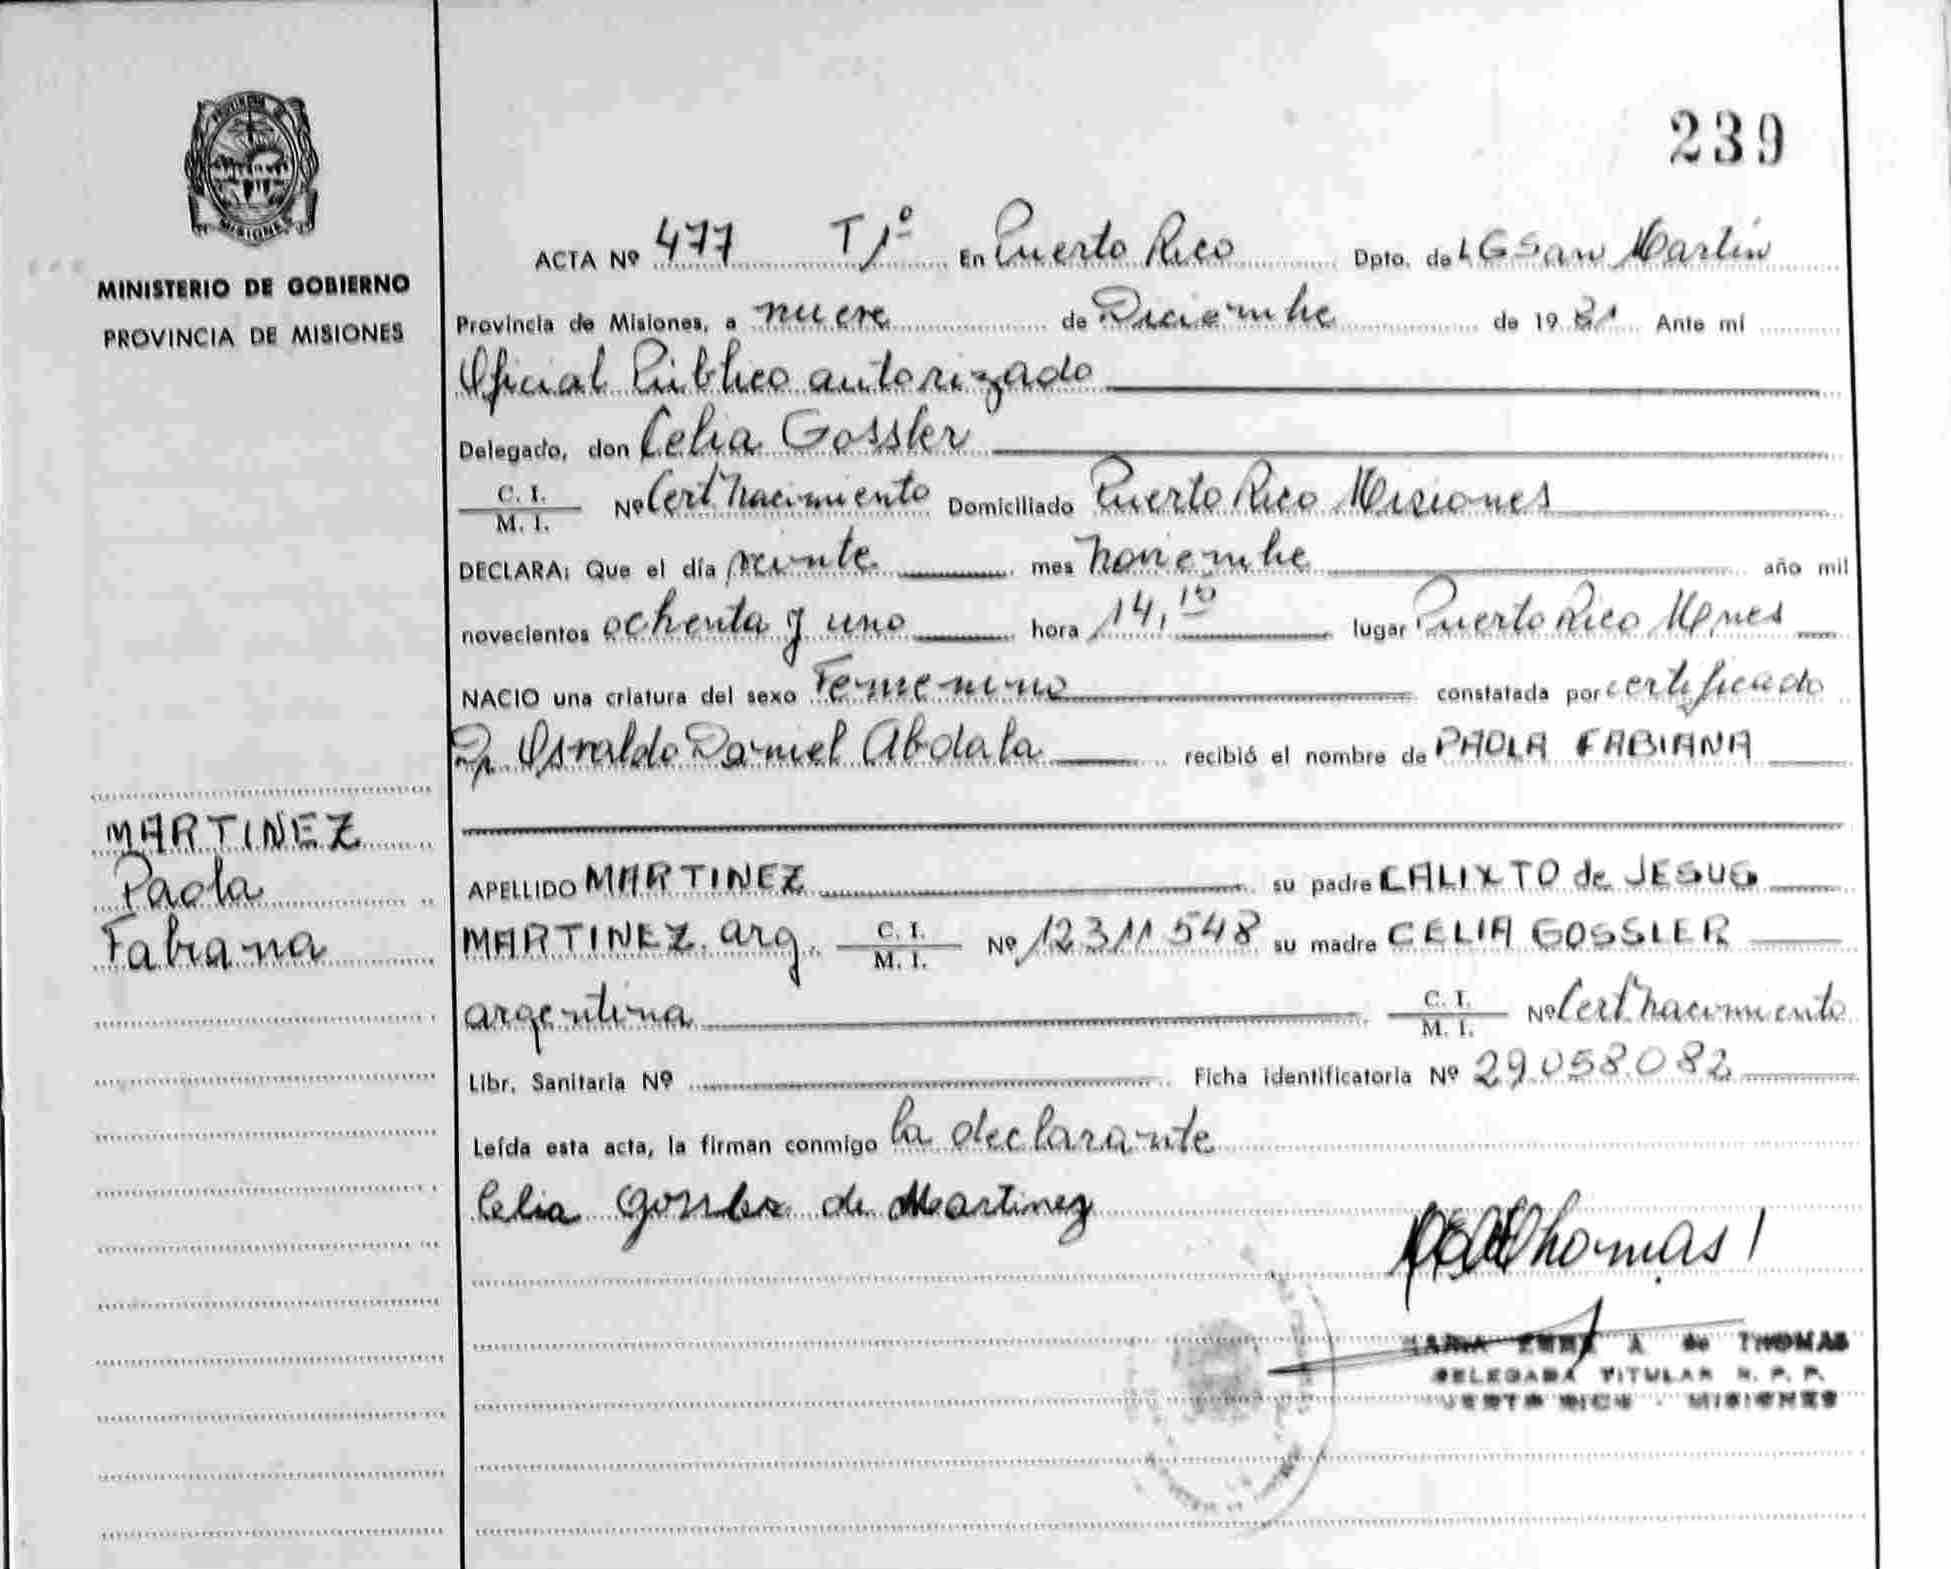 239
PROVINCIA
MISIONES
MINISTERIO DE GOBIERNO
PROVINCIA DE MISIONES
MARTINEZ
Paola
Fabiana
ACTA Nº 477 T 1º En Puerto Rico Dpto. de L G San Martín
Provincia de Misiones, a nueve de Diciembre de 19 81 Ante mí
Oficial Público autorizado
Delegado, don Celia Gossler
C. I.
M. I. Nº Cert Nacimiento Domiciliado Puerto Rico Misiones
DECLARA: Que el día veinte mes Noviembre año mil
novecientos ochenta y uno hora 14,10 lugar Puerto Rico Mnes
NACIO una criatura del sexo Femenino constatada por certificado
Dr. Osvaldo Daniel Abdala recibió el nombre de PAOLA FABIANA
APELLIDO MARTINEZ su padre CALIXTO de JESUS
MARTINEZ. arg. C. I.
M. I. Nº 12311548 su madre CELIA GOSSLER
argentina C. I.
M. I. Nº Cert Nacimiento
Libr. Sanitaria Nº Ficha identificatoria Nº 29.058.082
Leída esta acta, la firman conmigo la declarante
Celia Gossler de Martinez
Thomas
MARIA EMMA A de THOMAS
DELEGADA TITULAR R. P. P.
PUERTO RICO - MISIONES